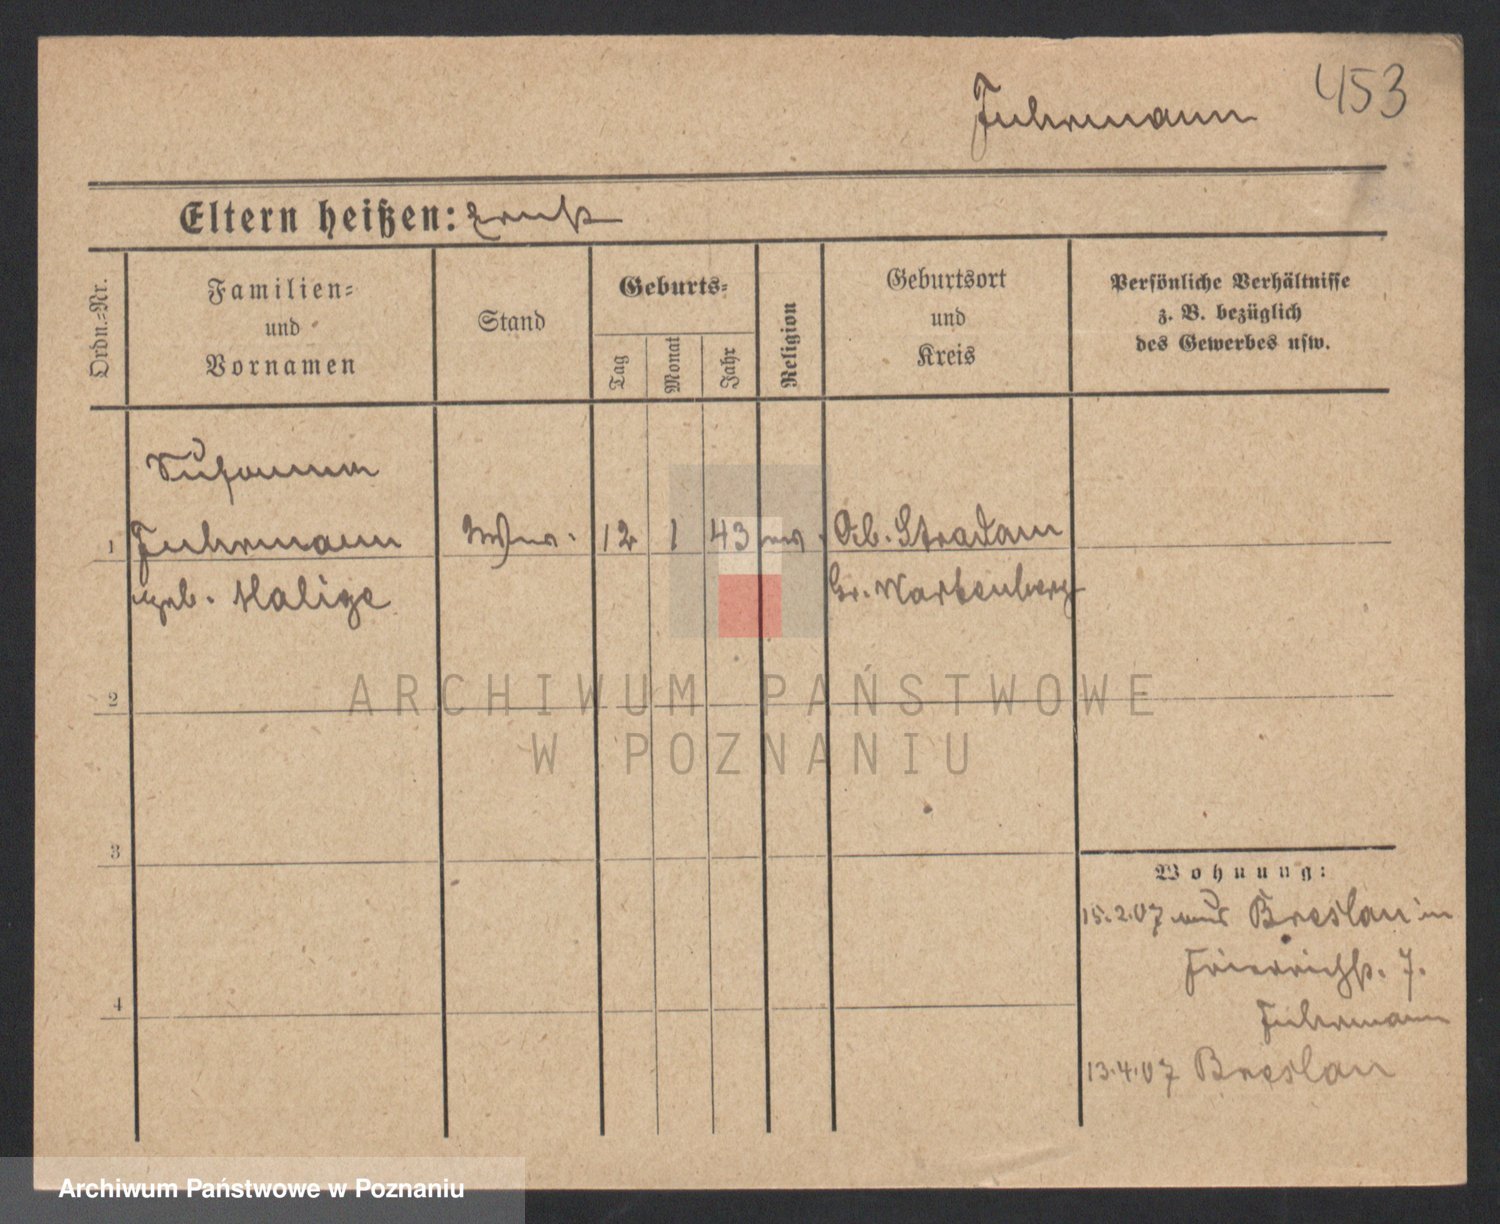 453
Fuhrmann
Eltern heißen: Ernst
Ordn.-Nr.
Familien-
und
Vornamen
Stand
Geburts-
Tag
Monat
Jahr
Religion
Geburtsort
und
Kreis
Persönliche Verhältnisse
z. B. bezüglich
des Gewerbes usw.
Susanna
1 Fuhrmann Wwe. 12 1 43 ev. Ob. Stradam
geb. Halige Gr. Wartenberg
2
3
4
Wohnung:
15.2.07 aus Breslau in
Friedrichst. 7.
Fuhrmann
13.4.07 Breslau
ARCHIWUM PAŃSTWOWE
W POZNANIU
Archiwum Państwowe w Poznaniu